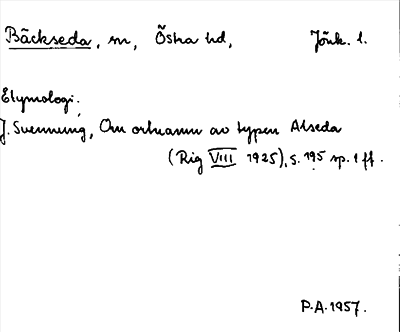 Bäckseda, sn, Östra hd, Jönk. l.
Etymologi:
J. Svenning, Om ortnamn av typen Alseda
(Rig VIII 1925), s. 195 sp. 1 ff.
P.A. 1957.